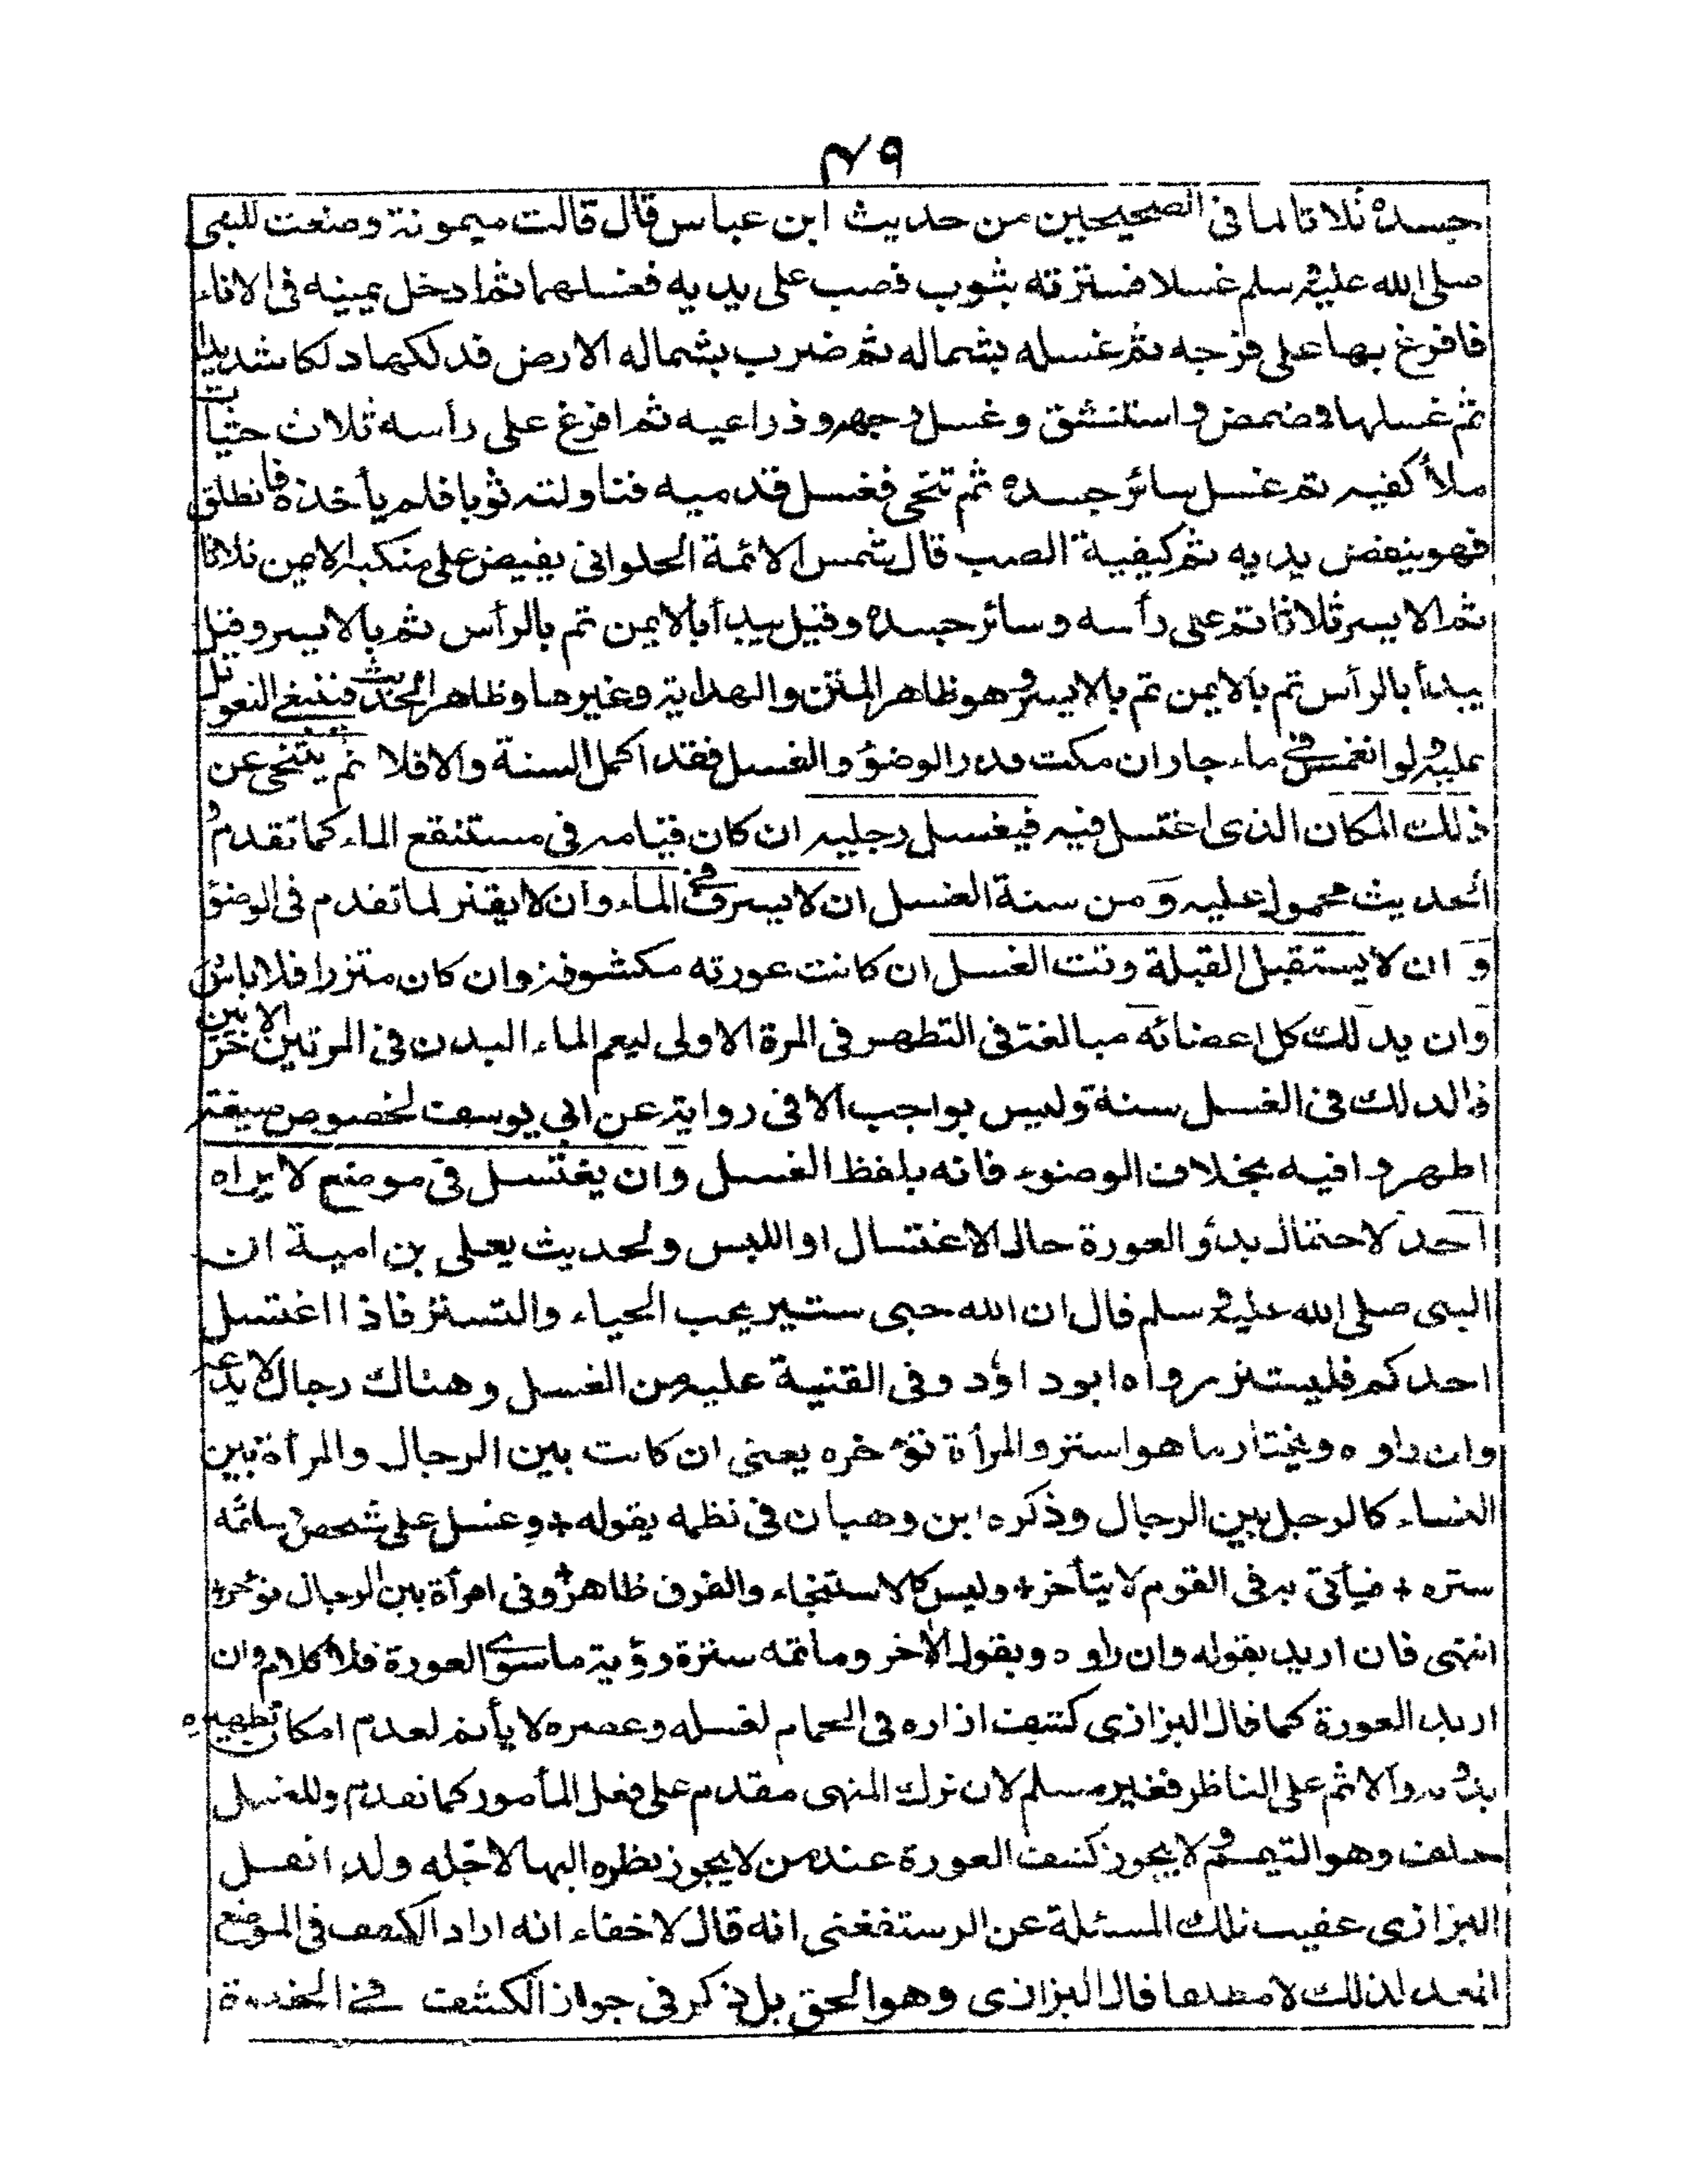 ٤٩
جسده ثلاثا لما فى الصحيحين من حديث ابن عباس قال قالت ميمونة وضعت للنبى
صلى الله عليه وسلم غسلا فسترته بثوب فصب على يديه فغسلهما ثم ادخل يمينه فى الاناء
فافرغ بها على فرجه ثم غسله بشماله ثم ضرب بشماله الارض فدلكها دلكا شديدا
ثم غسلها فمضمض واستنشق وغسل وجهه وذراعيه ثم افرغ على رأسه ثلاث حثيات
ملأ كفيه ثم غسل سائر جسده ثم تنحى فغسل قدميه فناولته ثوبا فلم يأخذه فانطلق
فهو ينفض يديه ثم كيفية الصب قال شمس الائمة الحلوانى يفيض على منكبه الايمن ثلاثا
ثم الايسر ثلاثا ثم على رأسه وسائر جسده وقيل يبدأ بالايمن ثم بالرأس ثم بالايسر وقيل
يبدأ بالرأس ثم بالايمن ثم بالايسر وهو ظاهر المتن والهداية وغيرها وظاهر الحديث فينبغى التعويل
عليه ولو انغمس فى ماء جار ان مكث قدر الوضوء والغسل فقد اكمل السنة والا فلا ثم يتنحى عن
ذلك المكان الذى اغتسل فيه فيغسل رجليه ان كان قيامه فى مستنقع الماء كما تقدم و
الحديث محمول عليه ومن سنة الغسل ان لا يسرف فى الماء وان لا يقتر لما تقدم فى الوضؤ
و ان لا يستقبل القبلة وقت الغسل ان كانت عورته مكشوفة وان كان متزرا فلا باس
وان يدلك كل اعضائه مبالغة فى التطهير فى المرة الاولى ليعم الماء البدن فى المرتين الاخريين
فالدلك فى الغسل سنة وليس بواجب الا فى رواية عن ابى يوسف لخصوص صيغة
اطهروا فيه بخلاف الوضوء فانه بلفظ الغسل وان يغتسل فى موضع لا يراه
احد لاحتمال بدؤ العورة حال الاغتسال او اللبس ولحديث يعلى بن امية ان
النبى صلى الله عليه وسلم قال ان الله حيى ستير يحب الحياء والتستر فاذا اغتسل
احدكم فليستتر رواه ابو داؤد وفى القنية عليه من الغسل وهناك رجال لا يدعه
وان راوه ويختار ما هو استر والمرأة تؤخره يعنى ان كانت بين الرجال والمرأة بين
النساء كالرجل بين الرجال وذكره ابن وهبان فى نظمه بقوله + وغسل على شخص ماثمه
ستره + فيأتى به فى القوم لا يتأخر + وليس كالاستنجاء والفرق ظاهر + وفى امرأة بين الرجال تؤخر +
انتهى فان اريد بقوله وان راوه وبقول الاخر وماثمه سترة رؤية ما سوى العورة فلا كلام وان
اريد العورة كما قال البزازى كشف ازاره فى الحمام لغسله وعصره لا يأثم لعدم امكان تطهيره
بدونه والاثم على الناظر فغير مسلم لان ترك المنهى مقدم على فعل المأمور كما تقدم وللغسل
خلف وهو التيمم ولا يجوز كشف العورة عند من لا يجوز نظره اليها لاجله ولذا نقل
البزازى عقيب تلك المسئلة عن الرستفغنى انه قال لا خفاء انه اراد الكشف فى الموضع
المعد لذلك لا مطلقا قال البزازى وهو الحق بل ذكر فى جواز الكشف فى